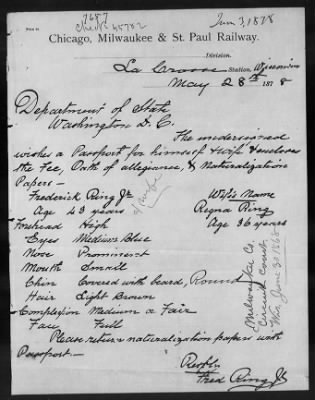 7687
June 3, 1878
Check 45782
Chicago, Milwaukee & St. Paul Railway.
Division.
La Crosse Station, Wisconsin
May 28th 1878
Department of State
Washington D.C.
The undersigned
wishes a Passport for himself & wife & encloses
the Fee, Oath of allegiance, & Naturalization
Papers -
Frederick Ring Jr Wife's Name
Age 43 years Regna Ring
Forehead High Age 36 years
Eyes Medium Blue
Nose Prominent
Mouth Small
Chin Covered with beard, Round
Hair Light Brown
Complexion Medium or Fair
Face Full
Please return naturalization papers with
Passport -
Resply
Fred Ring Jr
Milwaukee Co.
Circuit Court
Wis. June 30 1868